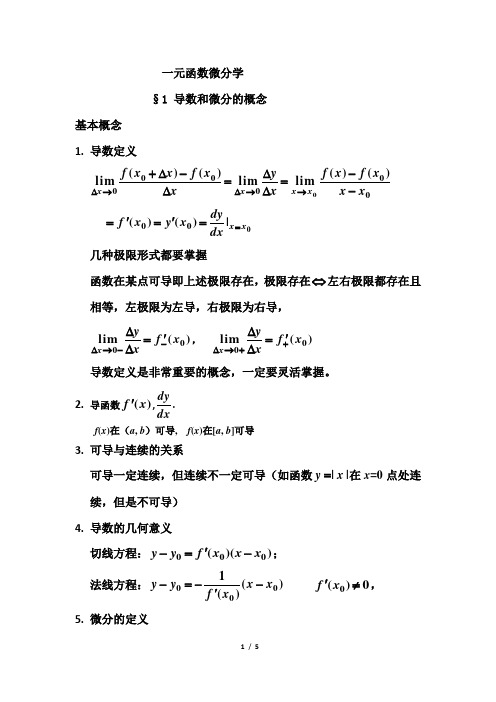 一元函数微分学
§1 导数和微分的概念
基本概念
1. 导数定义
lim_{Δx→0} \frac{f(x_0+Δx)−f(x_0)}{Δx} = lim_{Δx→0} \frac{Δy}{Δx} = lim_{x→x_0} \frac{f(x)−f(x_0)}{x−x_0}
= f′(x_0) = y′(x_0) = \frac{dy}{dx}|_{x=x_0}
几种极限形式都要掌握
函数在某点可导即上述极限存在，极限存在⇔左右极限都存在且
相等，左极限为左导，右极限为右导，
lim_{Δx→0−} \frac{Δy}{Δx} = f′_−(x_0)， lim_{Δx→0+} \frac{Δy}{Δx} = f′_+(x_0)
导数定义是非常重要的概念，一定要灵活掌握。
2. 导函数 f′(x), \frac{dy}{dx}.
f(x)在（a, b）可导， f(x)在[a, b]可导
3. 可导与连续的关系
可导一定连续，但连续不一定可导（如函数 y =| x |在 x=0 点处连
续，但是不可导）
4. 导数的几何意义
切线方程：y − y_0 = f′(x_0)(x − x_0)；
法线方程：y − y_0 = −\frac{1}{f′(x_0)}(x − x_0) f′(x_0) ≠ 0，
5. 微分的定义
1 / 5